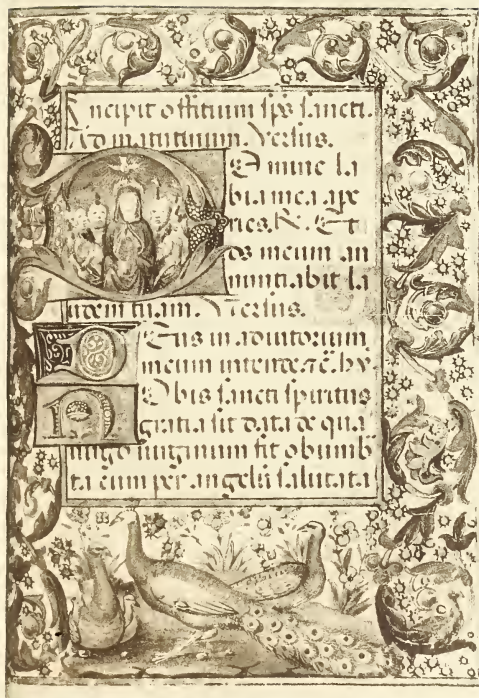 Incipit offitium sp̄s sancti.
Ad matutinum. Versus.
Domine la
bia mea ape
ries. R̄. Et
os meum an
nuntiabit la
udem tuam. Versus.
Deus in adiutorium
meum intende. ⁊c̄. hy.
Nobis sancti spiritus
gratia sit data de qua
uirgo uirginum fit obumb
ta cum per angelū salutata